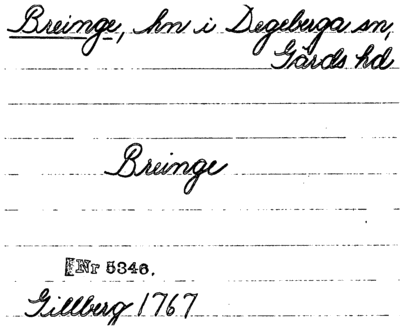 Breinge, hn i Degeberga sn,
Gärds hd
Breinge
Nr 5346.
Gillberg 1767